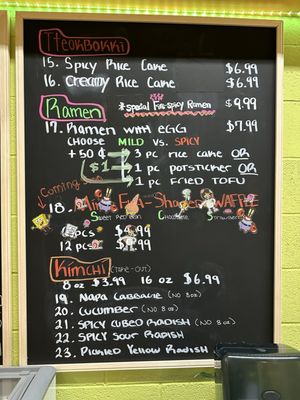 Tteokbokki
15. Spicy Rice Cake $6.99
16. Creamy Rice Cake $6.99
Ramen *special Fire-spicy Ramen $9.99
17. Ramen with EGG $7.99
CHOOSE MILD vs. SPICY
+50¢ 3 pc rice cake OR
$1 1 pc potsticker OR
1 pc FRIED TOFU
Coming
18. Mini Fish-Shaped WAFFLE
Sweet Red Bean Chocolate Strawberry
pcs $ .99
12 pcs $ .99
Kimchi (TAKE-OUT)
8 oz $3.99 16 oz $6.99
19. Napa Cabbage (NO 8oz)
20. Cucumber (NO 8oz)
21. SPICY CUBED RADISH (NO 8oz)
22. SPICY SOUR RADISH
23. Pickled Yellow Radish